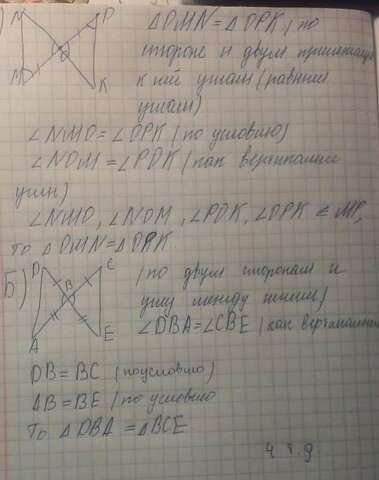 ) N P ΔOMN = ΔOPK (по
стороне и двум прилежащ
M O K к ней углам (равным
углам)
∠NMO = ∠OPK (по условию)
∠NOM = ∠POK (как вертикальные
углы)
∠NMO, ∠NOM, ∠POK, ∠OPK ∈ MP,
то ΔOMN = ΔOPK
Б) D C (по двум сторонам и
B углу между ними)
A E ∠DBA = ∠CBE (как вертикальн
DB = BC (по условию)
AB = BE (по условию
То ΔDBA = ΔBCE
ч. т. д